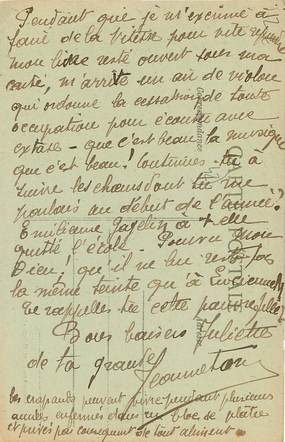 Pendant que je m'escrime à
faire de la vitesse pour vite
mon livre resté ouvert sous ma
carte, m'arrive un air de violon
qui ordonne la cessation de toute
occupation pour écouter avec
extase - que c'est beau la musique
que c'est beau! Continues-tu à
suivre les chœurs dont tu me
parlais au début de l'année?
Emilienne a-t-elle
quitté l'école - Pourvu mon
Dieu, qu'il ne lui reste pas
la même teinte qu'à
te rappelles-tu cette pauvre fille?
Bons baisers Juliette
de ta grande
Jeanneton
Les crapauds peuvent vivre pendant plusieurs
années enfermés dans un bloc de plâtre
et privés par conséquent de tout aliment
CARTE POSTALE
Correspondance